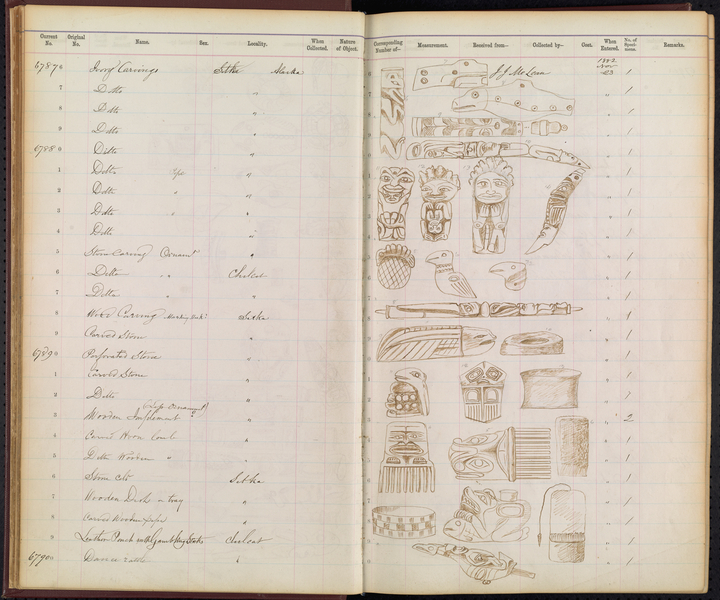 Current No. Original No. Name. Sex. Locality. When Collected. Nature of Object. Corresponding Number of— Measurement. Received from— Collected by— Cost. When Entered. No. of Specimens. Remarks.
67876 Ivory Carvings Sitka Alaska 6 J. J. McLean 1882 Nov 23 1
7 Ditto " 7 " 1
8 Ditto " 8 " 1
9 Ditto " 9 " 1
67880 Ditto " 0 " 1
1 Ditto Pipe " 1 " 1
2 Ditto " " 2 " 1
3 Ditto " " 3 " 1
4 Ditto " 4 " 1
5 Stone Carving Ornament " 5 " 1
6 Ditto " " Chilcat 6 " 1
7 Ditto " " 7 " 1
8 Wood Carving Sitka 8 " 1
9 Carved Stone " 9 " 1
67890 Perforated Stone " 0 " 1
1 Carved Stone " 1 " 1
2 Ditto " 2 " 1
3 Wooden Implement " 3 " 2
4 Carved Horn Comb " 4 " 1
5 Ditto Wooden " " 5 " 1
6 Stone Sitka 6 " 1
7 Wooden Dish or tray " 7 " 1
8 Carved Wooden pipe " 8 " 1
9 Leather Pouch with Gambling Sticks Chilcat 9 " 1
67900 Dance rattle " 0 " 1